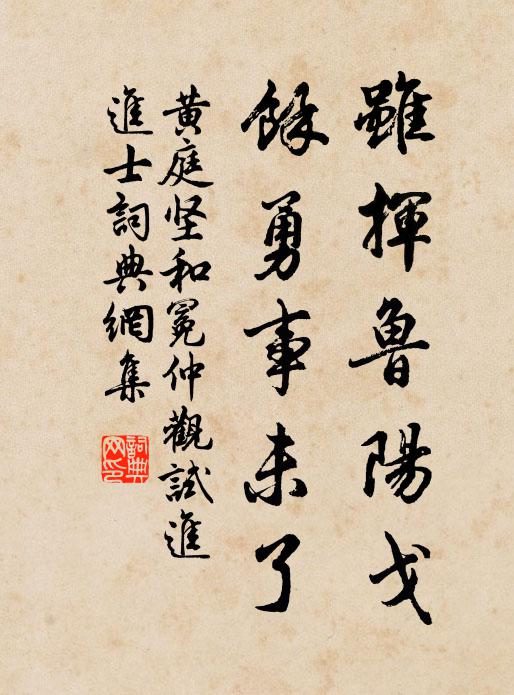 雖揮魯陽戈
餘勇事未了
黄庭坚和冕仲觀試進
進士詞典網集
詞典网印